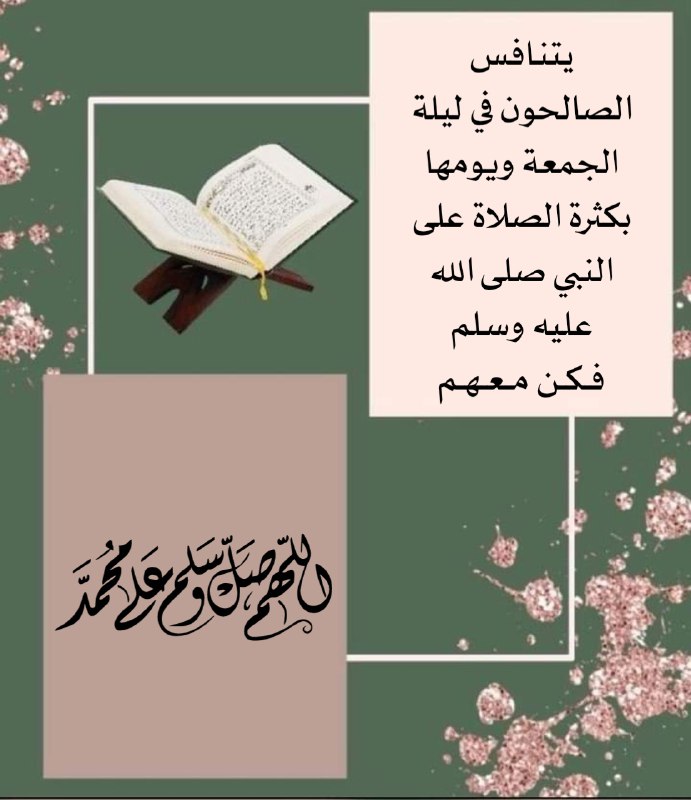 يتنافس
الصالحون في ليلة
الجمعة ويومها
بكثرة الصلاة على
النبي صلى الله
عليه وسلم
فكن معهم
اللَّهُم صَلِّ وسَلم عَلى مُحمدَّ